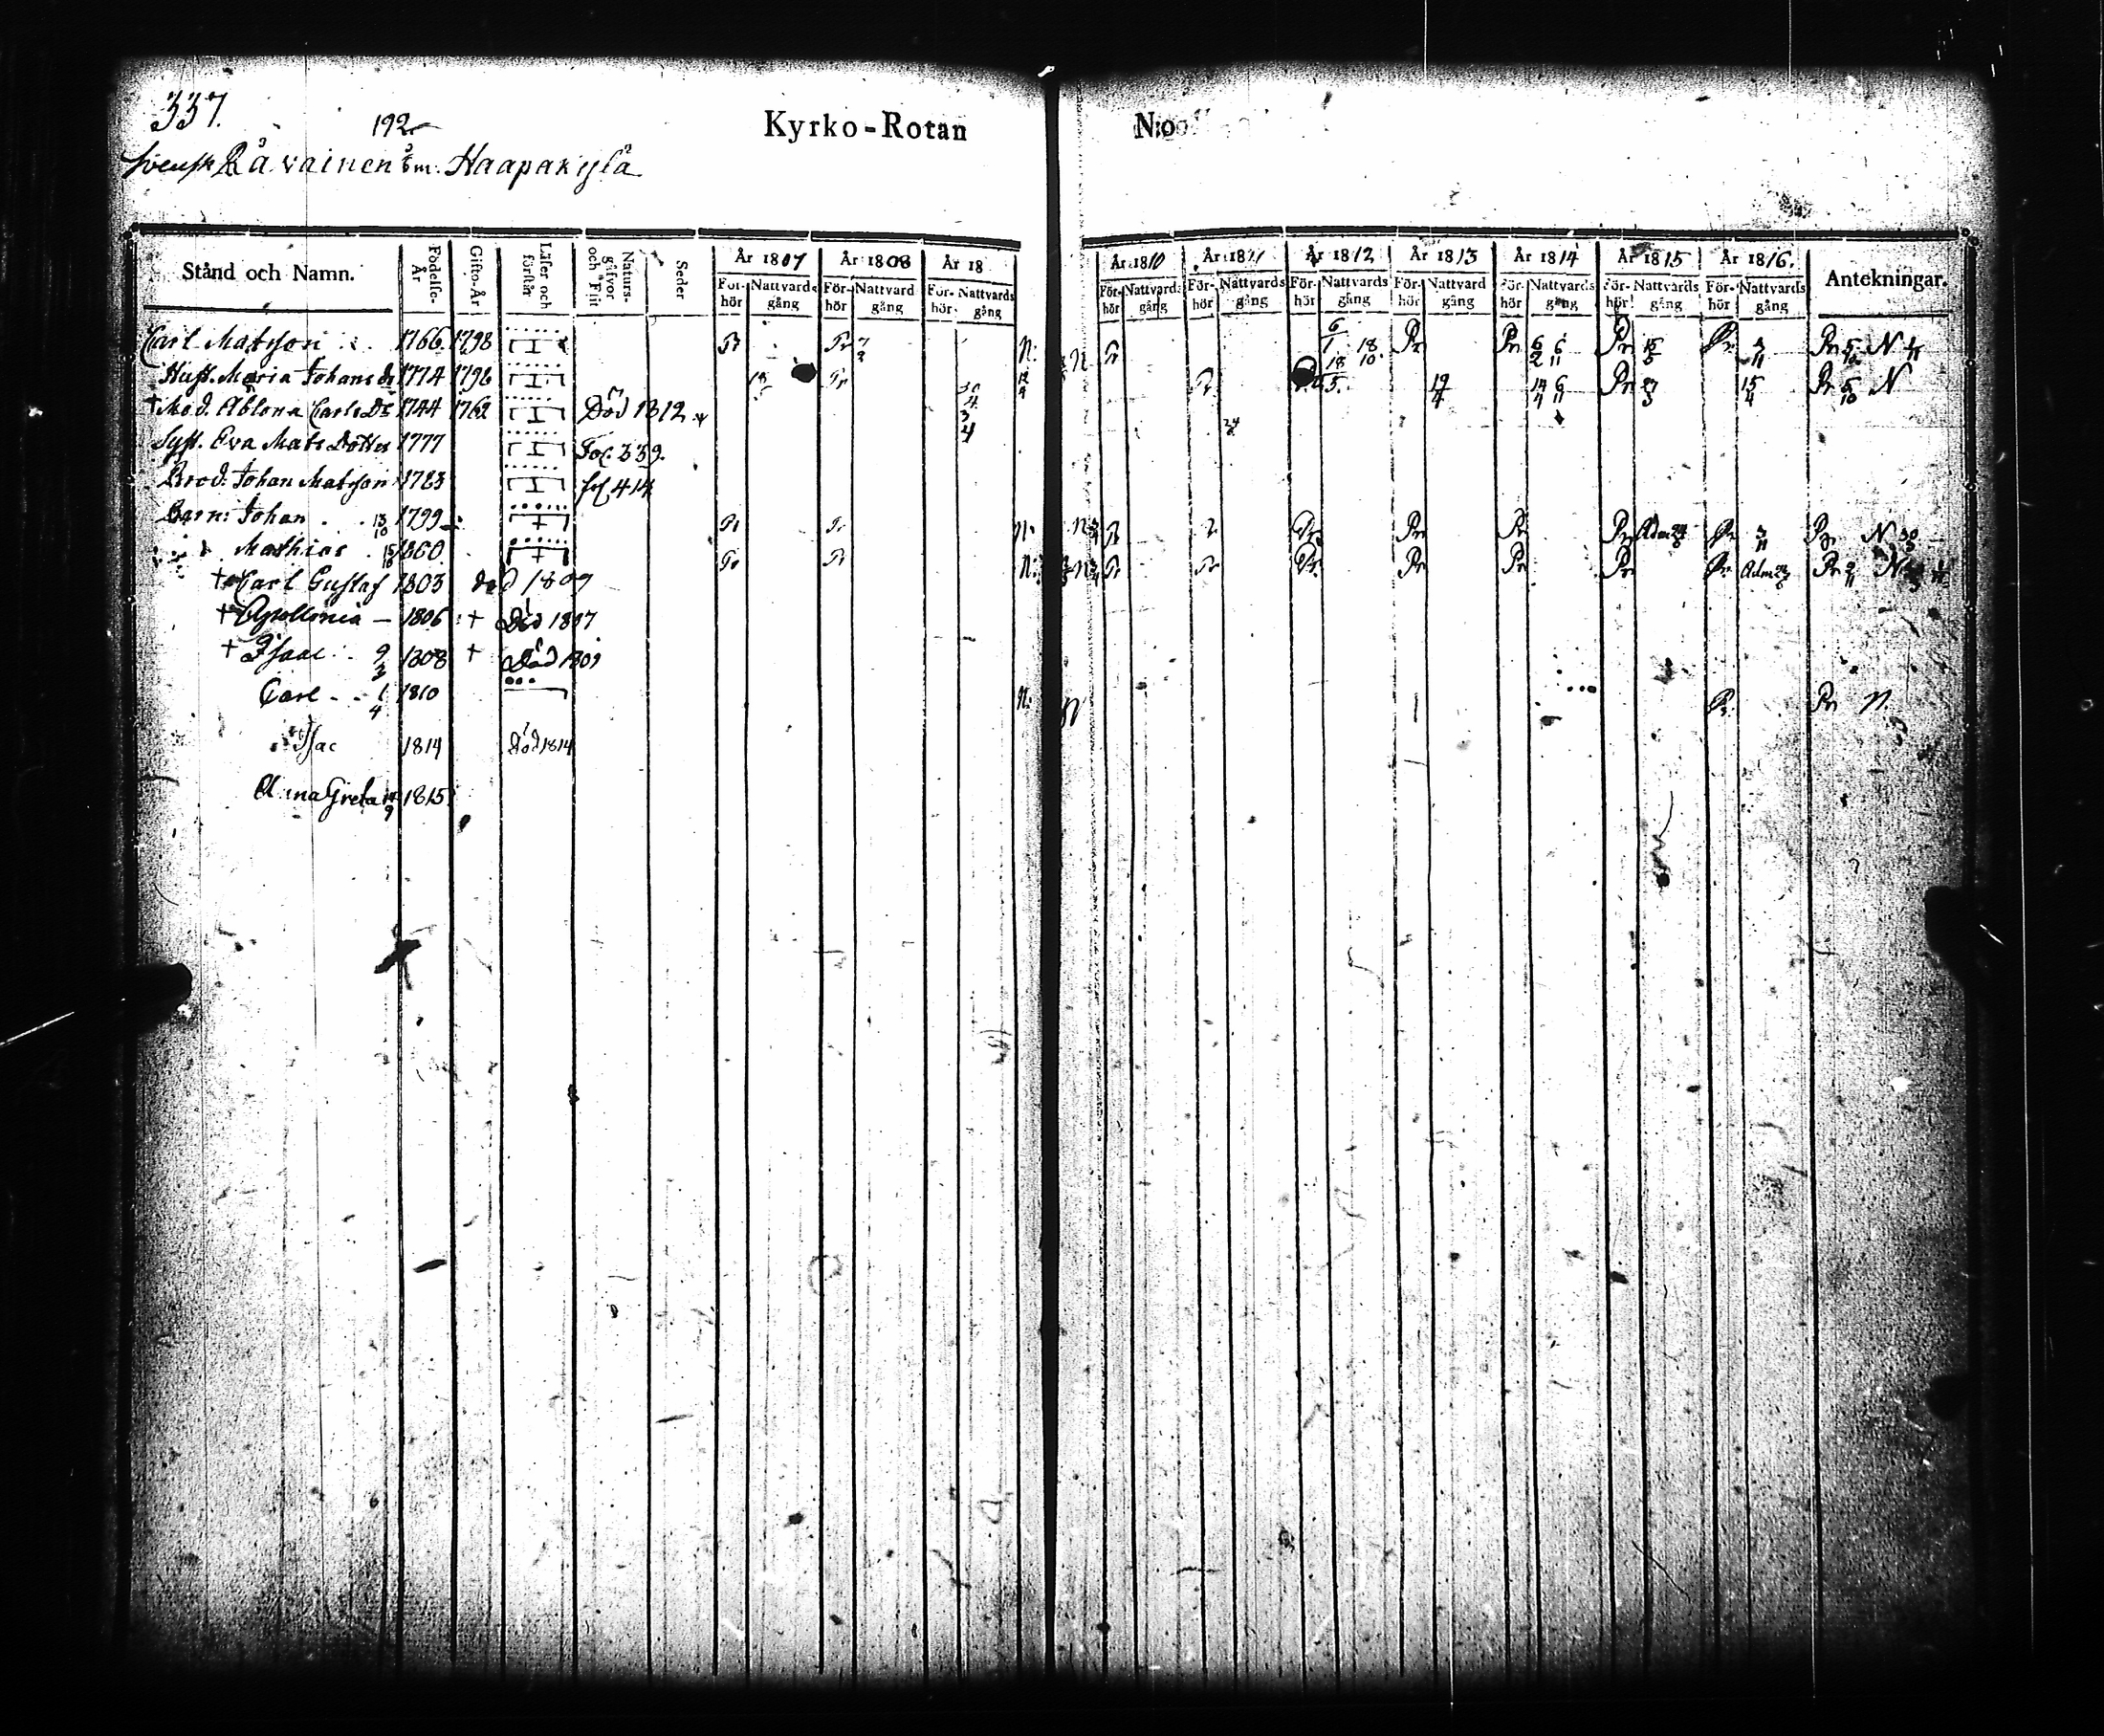 337.
192
Kyrko-Rotan N:o
Svensk Råvainen Haapakylä
Stånd och Namn. Födelse-År Gifto-År Läser och förstår Naturs-gåfvor och Flit Seder År 1807 År 1808 År 18 År 1810 År 1811 År 1812 År 1813 År 1814 År 1815 År 1816. Antekningar.
För-hör Nattvards gång För-hör Nattvard gång För-hör Nattvards gång För-hör Nattvards gång För-hör Nattvards gång För-hör Nattvards gång För-hör Nattvard gång För-hör Nattvards gång För-hör Nattvards gång För-hör Nattvards gång
Carl Matsson 1766 1798 Pr Pr N: N Pr 18/10 Pr Pr 6/2 6/11 Pr Pr 3/11 Pr 5/10 N
Hust. Maria Johans dr 1774 1796 Pr Pr Pr 14/4 6/11 Pr 15/4 Pr 5/10 N
† Mod. Ablona Carls Dr 1744 1762 Död 1812
Syst. Eva Mats Dotter 1777 Fol. 339.
Brod. Johan Matsson 1783 fol 414
Barn: Johan 13/10 1799 Pr Pr N: N Pr Pr Pr Pr Pr Pr Adm Pr 3/11 Pr N
Mathias 1800 Pr Pr N: N Pr Pr Pr Pr Pr Pr Pr Adm Pr N
† Carl Gustaf 1803 död 1809
† Apollonia — 1806 † Död 1807
† Isaac 9/3 1808 † Död 1809
Carl 1/4 1810 N: N Pr Pr N
Isac 1814 Död 1814
Anna Greta 1815